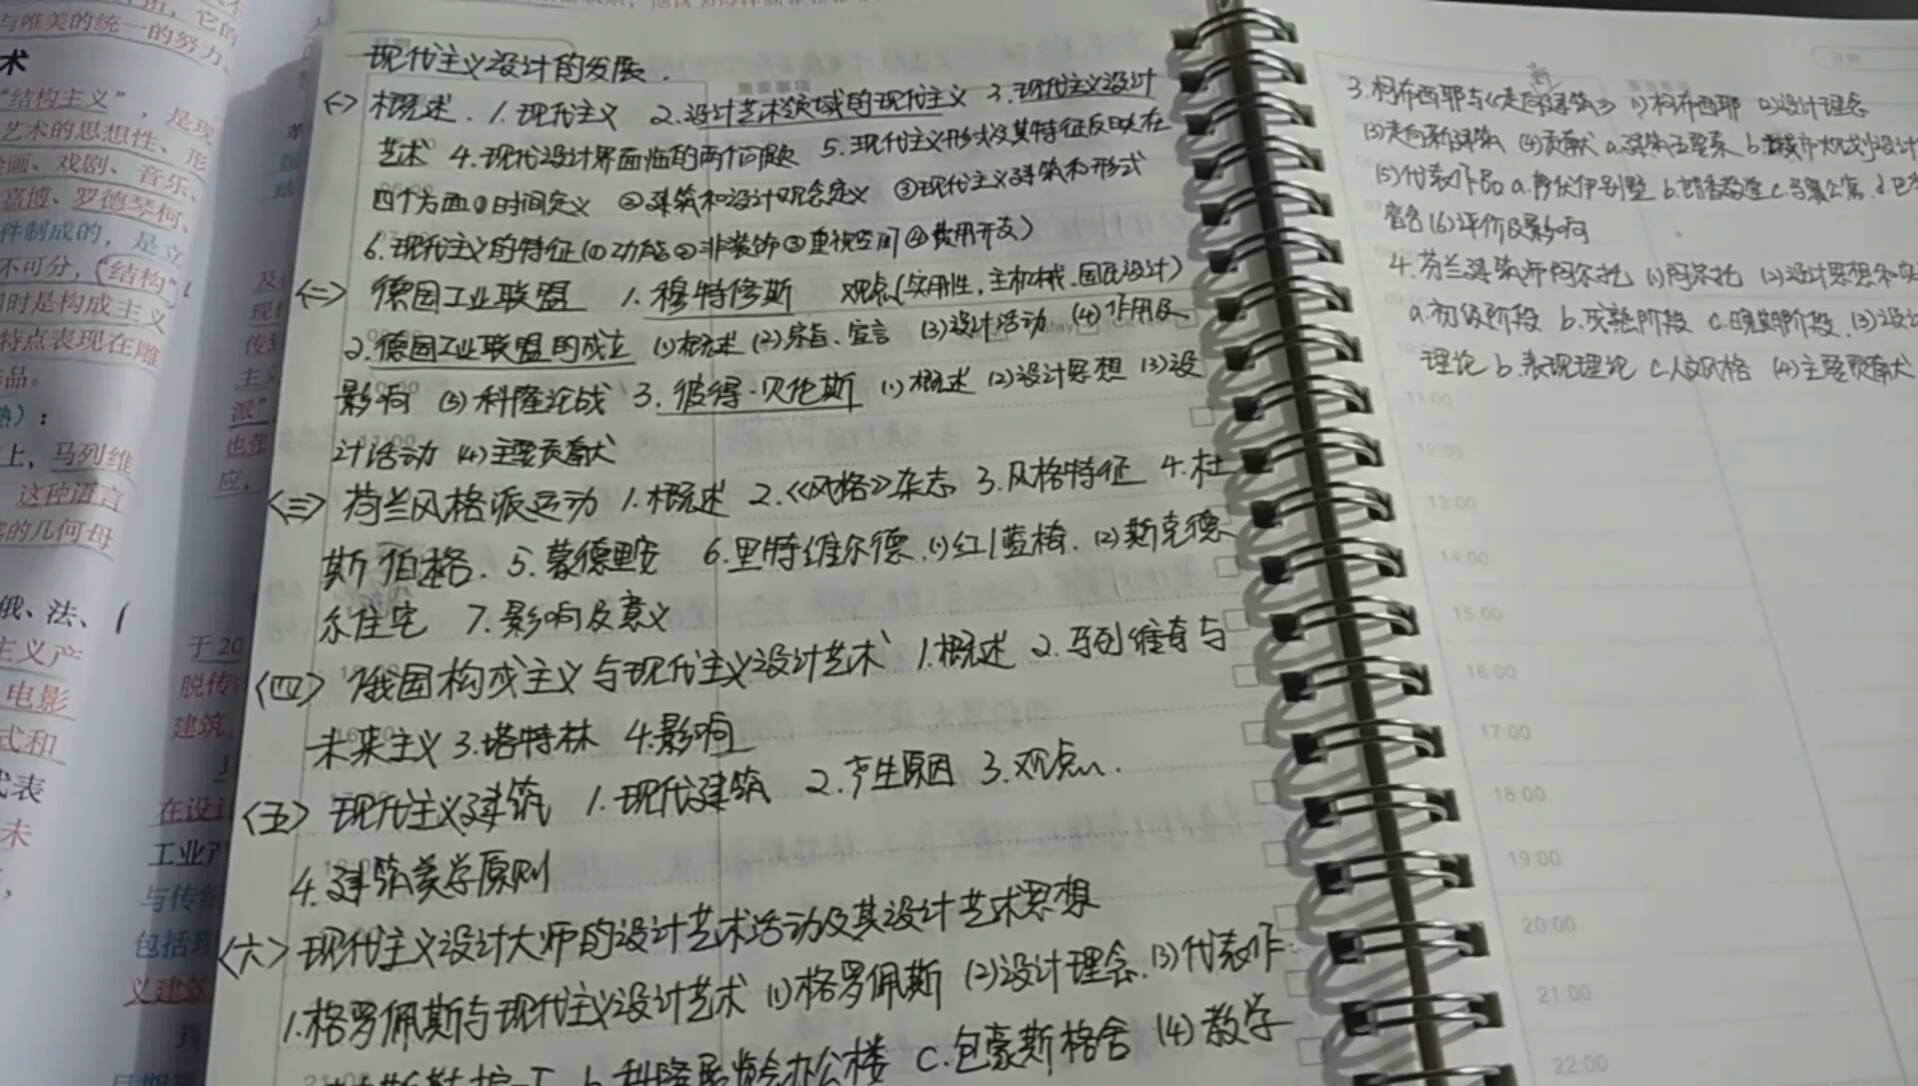 与唯美的统一的努力
术
“结构主义”，是现
艺术的思想性、形
绘画、戏剧、音乐、
嘉博、罗德琴柯、
件制成的，是立
不可分，“结构”
同时是构成主义
特点表现在雕
品。
上，马列维
这种语言
的几何母
俄、法、
主义产
电影
式和
代表
未
于20
脱传
建筑
在设计
工业产
与传统
包括
义建筑
现代主义设计的发展.
<一> 概述. 1.现代主义 2.设计艺术领域的现代主义 3.现代主义设计
艺术 4.现代设计界面临的两个问题 5.现代主义形式及其特征反映在
四个方面①时间定义 ②建筑和设计观念定义 ③现代主义建筑和形式
6.现代主义的特征(①功能②非装饰③重视空间④费用开支)
<二> 德国工业联盟 1.穆特修斯 观点(实用性,主机械.国民设计)
2.德国工业联盟的成立 (1)概述 (2)宗旨、宣言 (3)设计活动 (4)作用及
影响 (5)科隆论战 3.彼得·贝伦斯 (1)概述 (2)设计思想 (3)设
计活动 (4)主要贡献
<三> 荷兰风格派运动 1.概述 2.《风格》杂志 3.风格特征 4.杜
斯伯格. 5.蒙德里安 6.里特维尔德.(1)红/蓝椅.(2)斯克德
尔住宅 7.影响及意义
<四> 俄国构成主义与现代主义设计艺术 1.概述 2.马列维奇与
未来主义 3.塔特林 4.影响
<五> 现代主义建筑 1.现代建筑 2.产生原因 3.观点.
4.建筑美学原则
<六> 现代主义设计大师的设计艺术活动及其设计艺术思想
1.格罗佩斯与现代主义设计艺术 (1)格罗佩斯 (2)设计理念.(3)代表作
b.科隆展览会办公楼 C.包豪斯格舍 (4)教学
3.柯布西耶与《走向新建筑》 (1)柯布西耶 (2)设计理念
(3)走向新建筑 (4)贡献 a.建筑五要素 b.城市规划设计
(5)代表作品 a.萨伏伊别墅 b.朗香教堂 c.马赛公寓
宿舍 (6)评价及影响
4.芬兰建筑师阿尔托 (1)阿尔托 (2)设计思想和
a.初级阶段 b.成熟阶段 c.晚期阶段.(3)设计
理论 b.表现理论 C.人文风格 (4)主要贡献
11:00
12:00
13:00
14:00
15:00
16:00
17:00
18:00
19:00
20:00
21:00
22:00